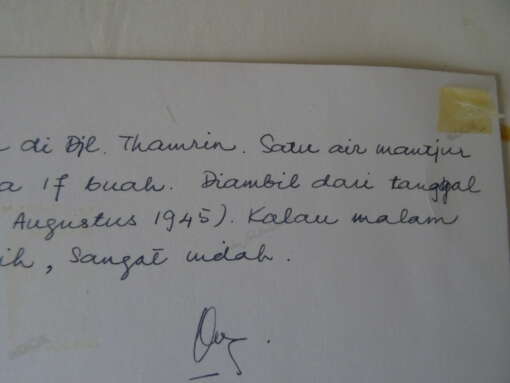 di Djl. Thamrin. Satu air mantjur
a 17 buah. Diambil dari tanggal
Augustus 1945). Kalau malam
ih, Sangat indah.